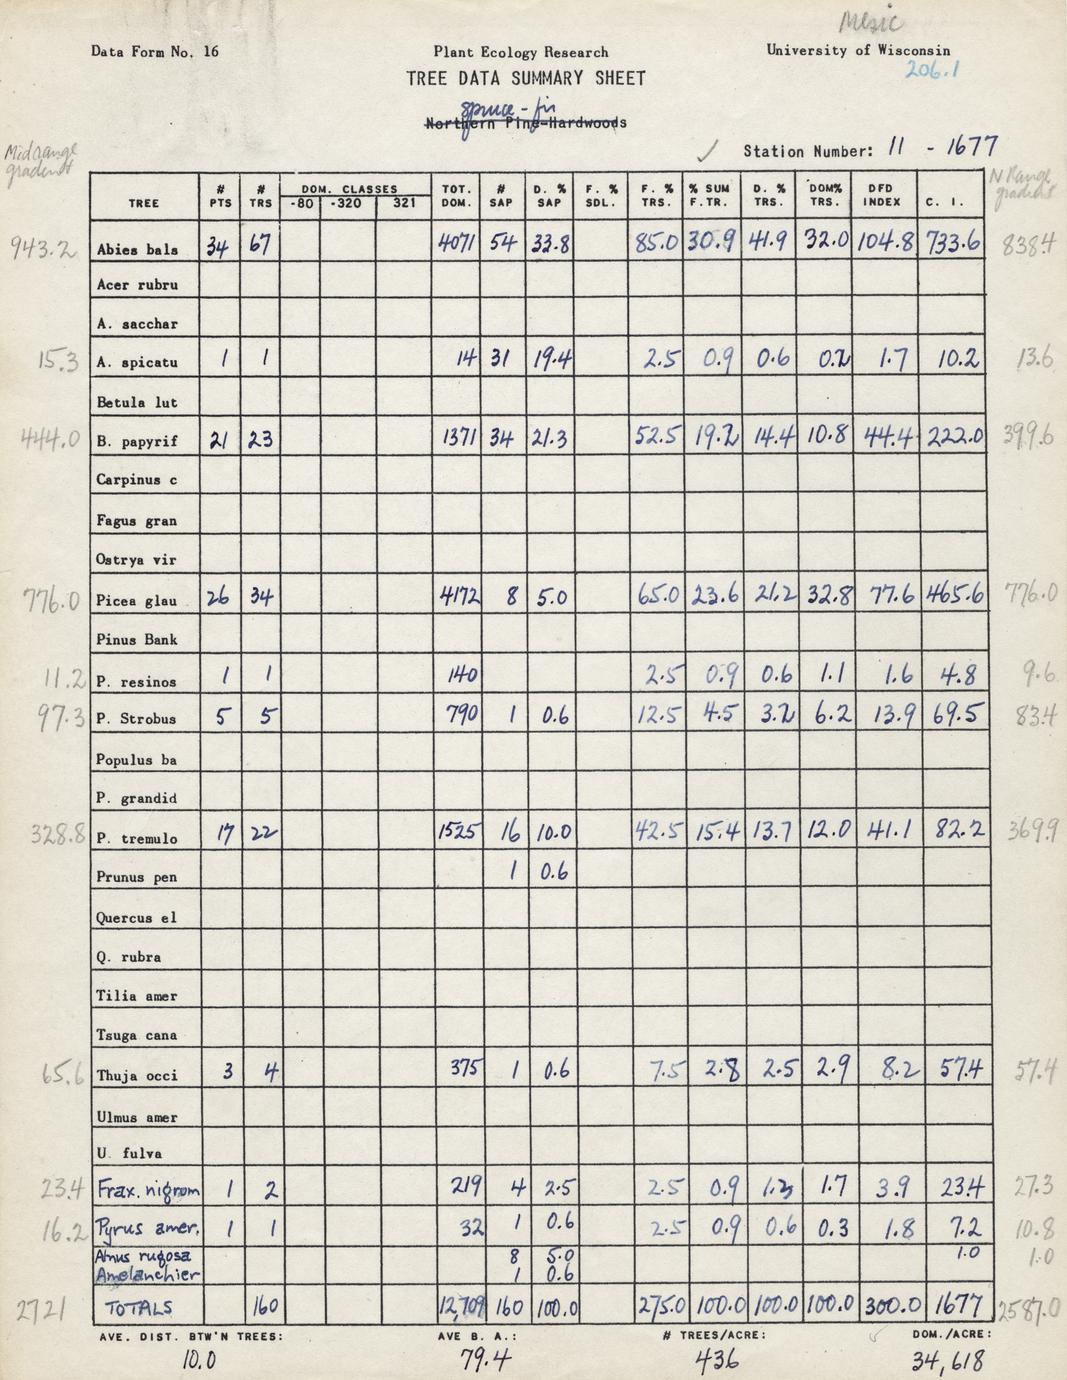 Mesic
Data Form No. 16 Plant Ecology Research University of Wisconsin
TREE DATA SUMMARY SHEET 206.1
Spruce - fir
Northern Pine-Hardwoods
✓ Station Number: 11 - 1677
Midrange gradient N Range gradient
TREE # PTS # TRS DOM. CLASSES -80 -320 321 TOT. DOM. # SAP D. % SAP F. % SDL. F. % TRS. % SUM F.TR. D. % TRS. DOM% TRS. DFD INDEX C. I.
943.2 Abies bals 34 67 4071 54 33.8 85.0 30.9 41.9 32.0 104.8 733.6 838.4
Acer rubru
A. sacchar
15.3 A. spicatu 1 1 14 31 19.4 2.5 0.9 0.6 0.2 1.7 10.2 13.6
Betula lut
444.0 B. papyrif 21 23 1371 34 21.3 52.5 19.2 14.4 10.8 44.4 222.0 399.6
Carpinus c
Fagus gran
Ostrya vir
776.0 Picea glau 26 34 4172 8 5.0 65.0 23.6 21.2 32.8 77.6 465.6 776.0
Pinus Bank
11.2 P. resinos 1 1 140 2.5 0.9 0.6 1.1 1.6 4.8 9.6
97.3 P. Strobus 5 5 790 1 0.6 12.5 4.5 3.2 6.2 13.9 69.5 83.4
Populus ba
P. grandid
328.8 P. tremulo 17 22 1525 16 10.0 42.5 15.4 13.7 12.0 41.1 82.2 369.9
Prunus pen 1 0.6
Quercus el
Q. rubra
Tilia amer
Tsuga cana
65.6 Thuja occi 3 4 375 1 0.6 7.5 2.8 2.5 2.9 8.2 57.4 57.4
Ulmus amer
U. fulva
23.4 Frax. nigrom 1 2 219 4 2.5 2.5 0.9 1.3 1.7 3.9 23.4 27.3
16.2 Pyrus amer. 1 1 32 1 0.6 2.5 0.9 0.6 0.3 1.8 7.2 10.8
Alnus rugosa 8 5.0 1.0 1.0
Amelanchier 1 0.6
2721 TOTALS 160 12,709 160 100.0 275.0 100.0 100.0 100.0 300.0 1677 2587.0
AVE. DIST. BTW'N TREES: AVE B. A.: # TREES/ACRE: ✓ DOM./ACRE:
10.0 79.4 436 34,618